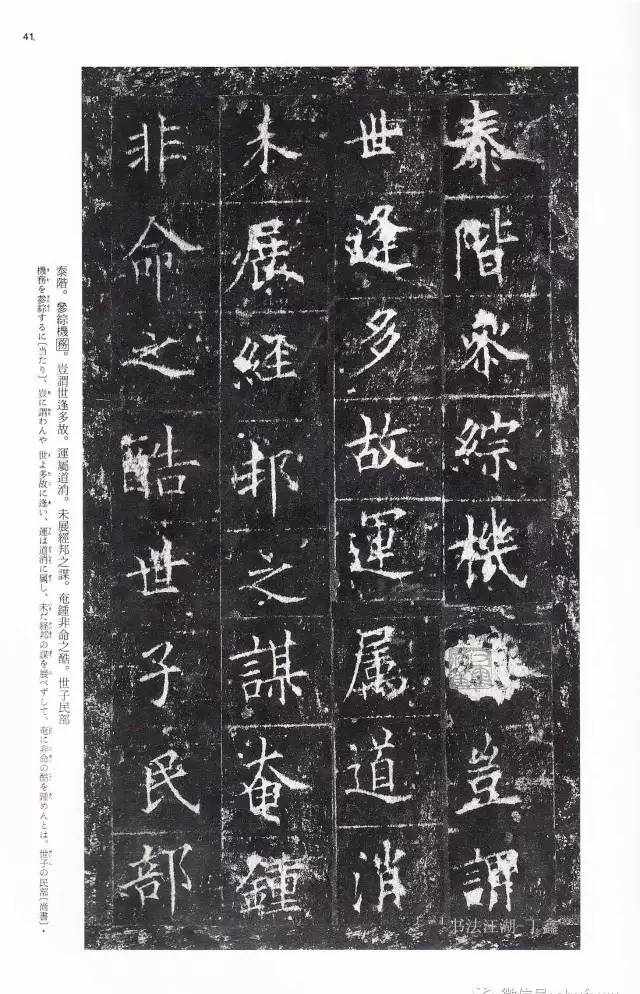 41.
泰階叅綜機豈謂
世逢多故運属道消
未展經邦之謀奄鍾
非命之酷世子民部
泰階。參綜機務。豈謂世逢多故。運屬道消。未展經邦之謀。奄鍾非命之酷。世子民部
機務を參綜するに〔当たり〕、豈に謂わんや 世よ多故に逢い、運は道消に属し、未だ経邦の謀を展べずして、奄に非命の酷を鍾めんとは。世子の民部〔尚書〕・
书法江湖_丁鑫